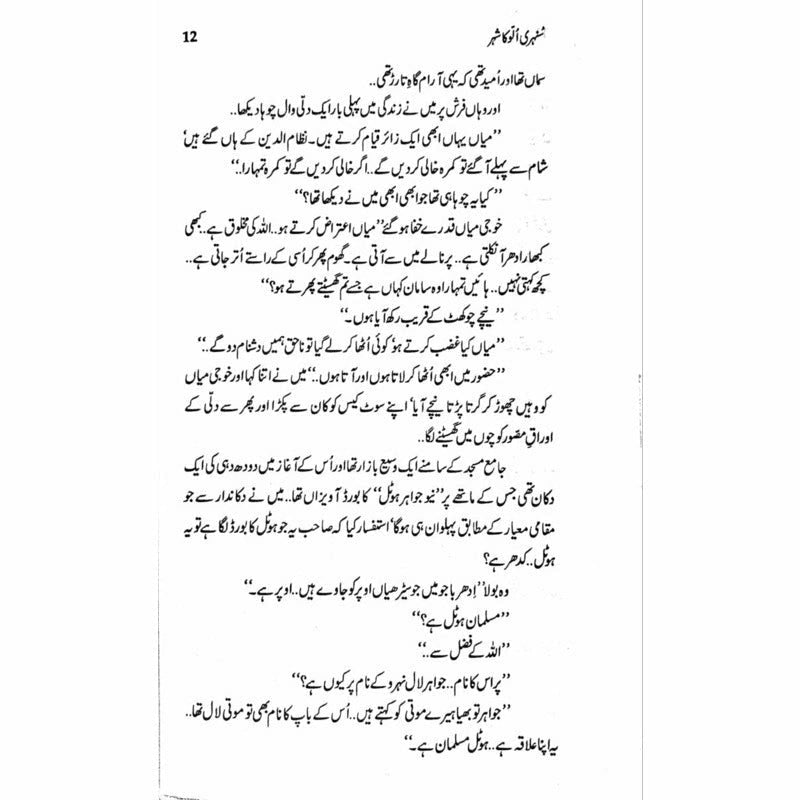 سُنہری اُلّو کا شہر 12
سماں تھا اور اُمید تھی کہ یہی آرام گاہِ تارڑ تھی..
اور وہاں فرش پر میں نے زندگی میں پہلی بار ایک دلّی وال چوہا دیکھا..
’’میاں یہاں ابھی ایک زائر قیام کرتے ہیں۔ نظام الدین کے ہاں گئے ہیں‘
شام سے پہلے آ گئے تو کمرہ خالی کر دیں گے.. اگر خالی کر دیں گے تو کمرہ تمہارا..‘‘
’’کیا یہ چوہا ہی تھا جو ابھی ابھی میں نے دیکھا تھا؟‘‘
خوجی میاں قدرے خفا ہو گئے ’’میاں اعتراض کرتے ہو.. اللہ کی مخلوق ہے.. کبھی
کبھار ادھر آ نکلتی ہے.. پرنالے میں سے آتی ہے۔ گھوم پھر کر اُسی کے راستے اُتر جاتی ہے..
کچھ کہتی نہیں.. ہائیں تمہارا وہ سامان کہاں ہے جسے تم گھسیٹتے پھرتے ہو؟‘‘
’’نیچے چوکھٹ کے قریب رکھ آیا ہوں۔‘‘
’’میاں کیا غضب کرتے ہو‘ کوئی اُٹھا کر لے گیا تو ناحق ہمیں دشنام دو گے..‘‘
’’حضور میں ابھی اُٹھا کر لاتا ہوں اور آتا ہوں..‘‘ میں نے اتنا کہا اور خوجی میاں
کو وہیں چھوڑ کر گرتا پڑتا نیچے آیا‘ اپنے سوٹ کیس کو کان سے پکڑا اور پھر سے دلّی کے
اوراقِ مصّور کوچوں میں گھسیٹنے لگا..
جامع مسجد کے سامنے ایک وسیع بازار تھا اور اُس کے آغاز میں دودھ دہی کی ایک
دکان تھی جس کے ماتھے پر ’’نیو جواہر ہوٹل‘‘ کا بورڈ آویزاں تھا.. میں نے دکاندار سے جو
مقامی معیار کے مطابق پہلوان ہی ہوگا‘ استفسار کیا کہ صاحب یہ جو ہوٹل کا بورڈ لگا ہے تو یہ
ہوٹل.. کدھر ہے؟
وہ بولا ’’اِدھر باجو میں جو سیڑھیاں اوپر کو جاوے ہیں.. اوپر ہے۔‘‘
’’مسلمان ہوٹل ہے؟‘‘
’’اللہ کے فضل سے..‘‘
’’پر اس کا نام.. جواہر لال نہرو کے نام پر کیوں ہے؟‘‘
’’جواہر تو بھیا ہیرے موتی کو کہتے ہیں.. اُس کے باپ کا نام بھی تو موتی لال تھا..
یہ اپنا علاقہ ہے.. ہوٹل مسلمان ہے۔‘‘